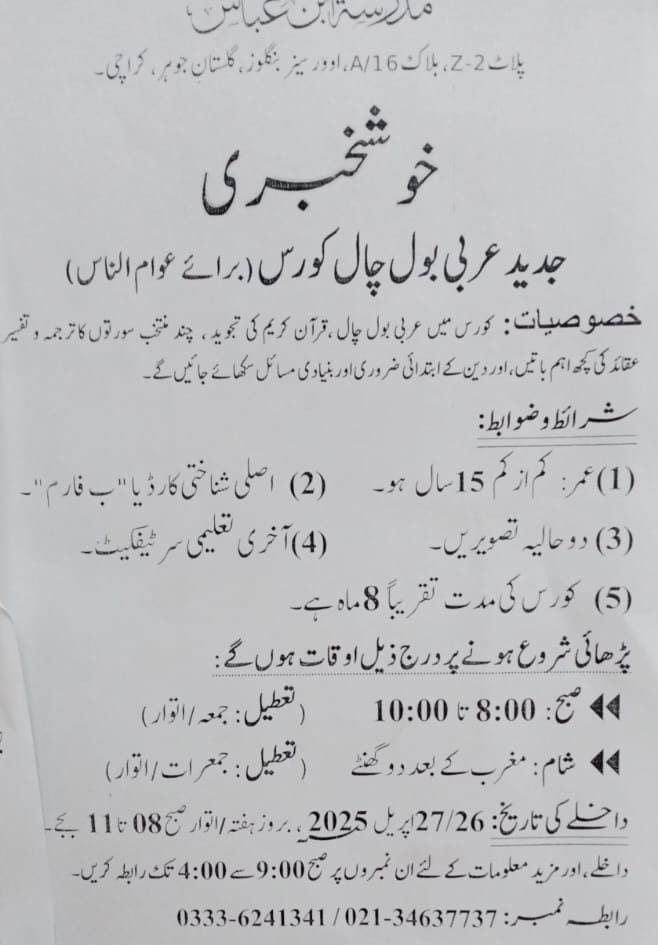 مدرسۃ ابن عباس
پلاٹ Z-2، بلاک A/16، اوورسیز بنگلوز، گلستان جوہر، کراچی۔
خوشخبری
جدید عربی بول چال کورس (برائے عوام الناس)
خصوصیات: کورس میں عربی بول چال، قرآن کریم کی تجوید، چند منتخب سورتوں کا ترجمہ و تفسیر
عقائد کی کچھ اہم باتیں، اور دین کے ابتدائی ضروری اور بنیادی مسائل سکھائے جائیں گے۔
شرائط و ضوابط:
(1) عمر: کم از کم 15 سال ہو۔ (2) اصلی شناختی کارڈ یا "ب فارم"۔
(3) دو حالیہ تصویریں۔ (4) آخری تعلیمی سرٹیفکیٹ۔
(5) کورس کی مدت تقریباً 8 ماہ ہے۔
پڑھائی شروع ہونے پر درج ذیل اوقات ہوں گے:
صبح: 8:00 تا 10:00 (تعطیل: جمعہ/اتوار)
شام: مغرب کے بعد دو گھنٹے (تعطیل: جمعرات/اتوار)
داخلے کی تاریخ: 27/26 اپریل 2025، بروز ہفتہ/اتوار صبح 08 تا 11 بجے۔
داخلے، اور مزید معلومات کے لئے ان نمبروں پر صبح 9:00 سے 4:00 تک رابطہ کریں۔
رابطہ نمبر: 021-34637737 / 0333-6241341